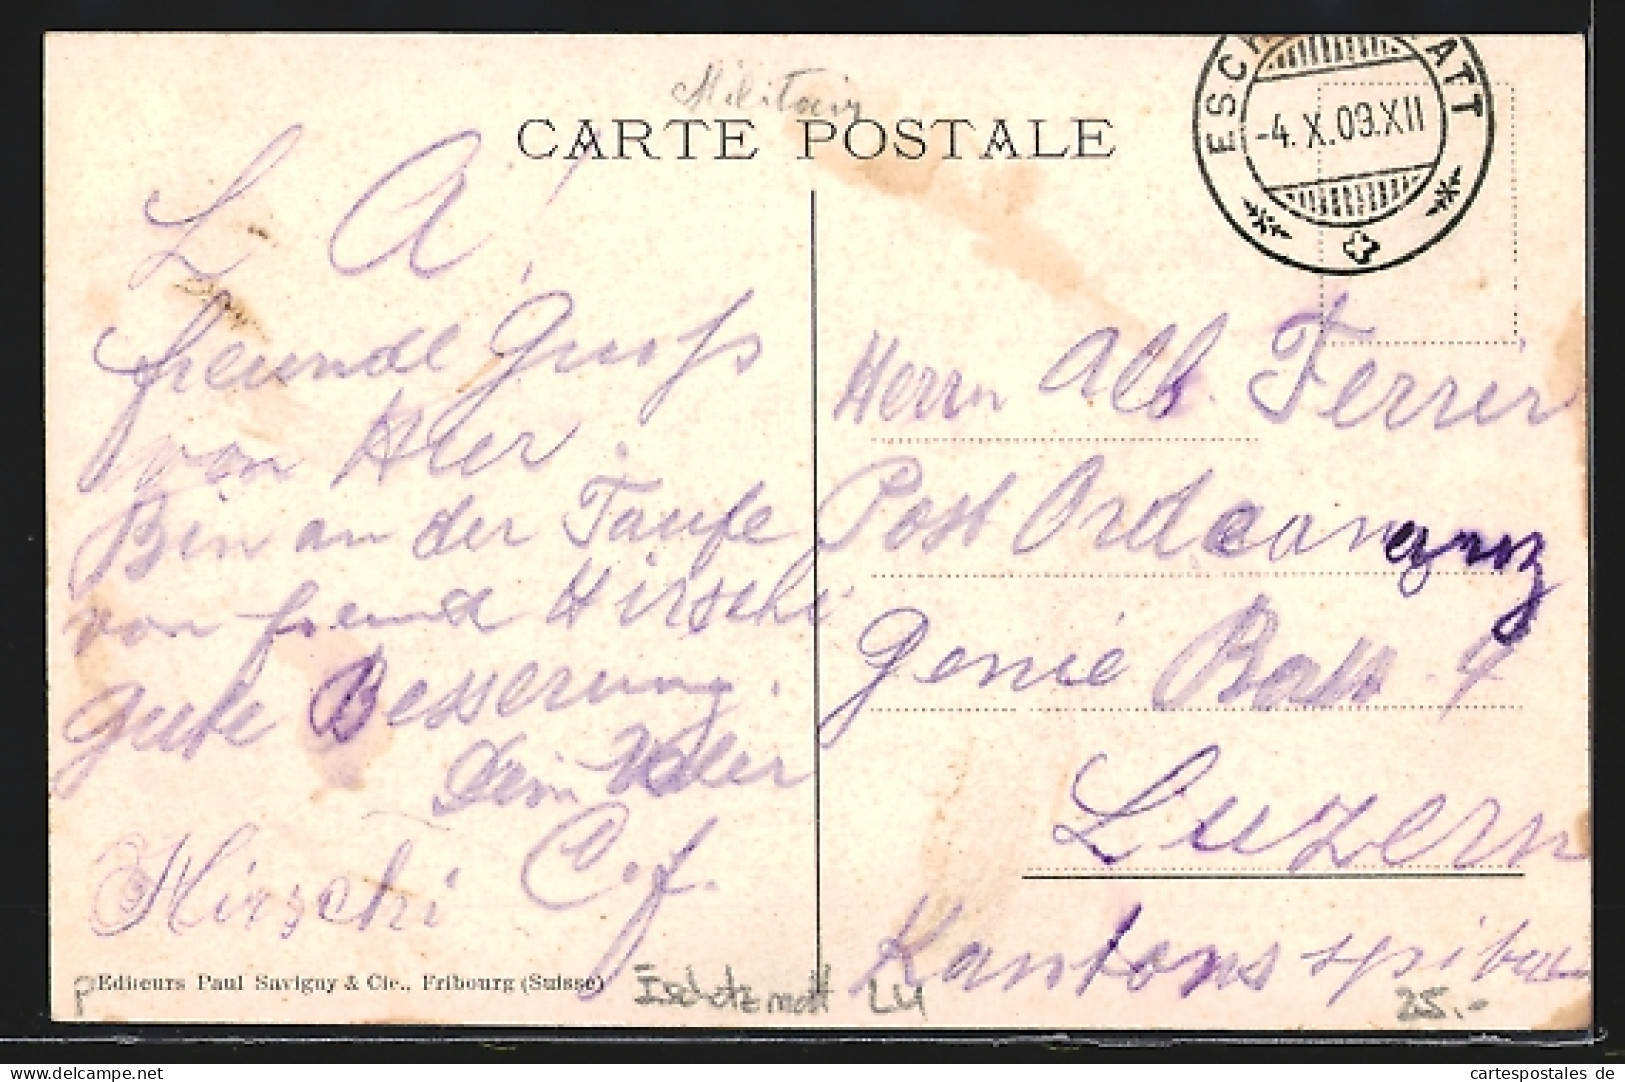 Militair
CARTE POSTALE
-4.X.09.XII
L A!
freunde Gruss
von Hier.
Bin an der Taufe
von freund Hirschi
Gute Besserung.
Dein
Hirschi
Herrn Alb. Ferrier
Post
Genie Batt. 4
Luzern
Kantonsspital
Editeurs Paul Savigny & Cie., Fribourg (Suisse)
LU
25.-
cartespostales de